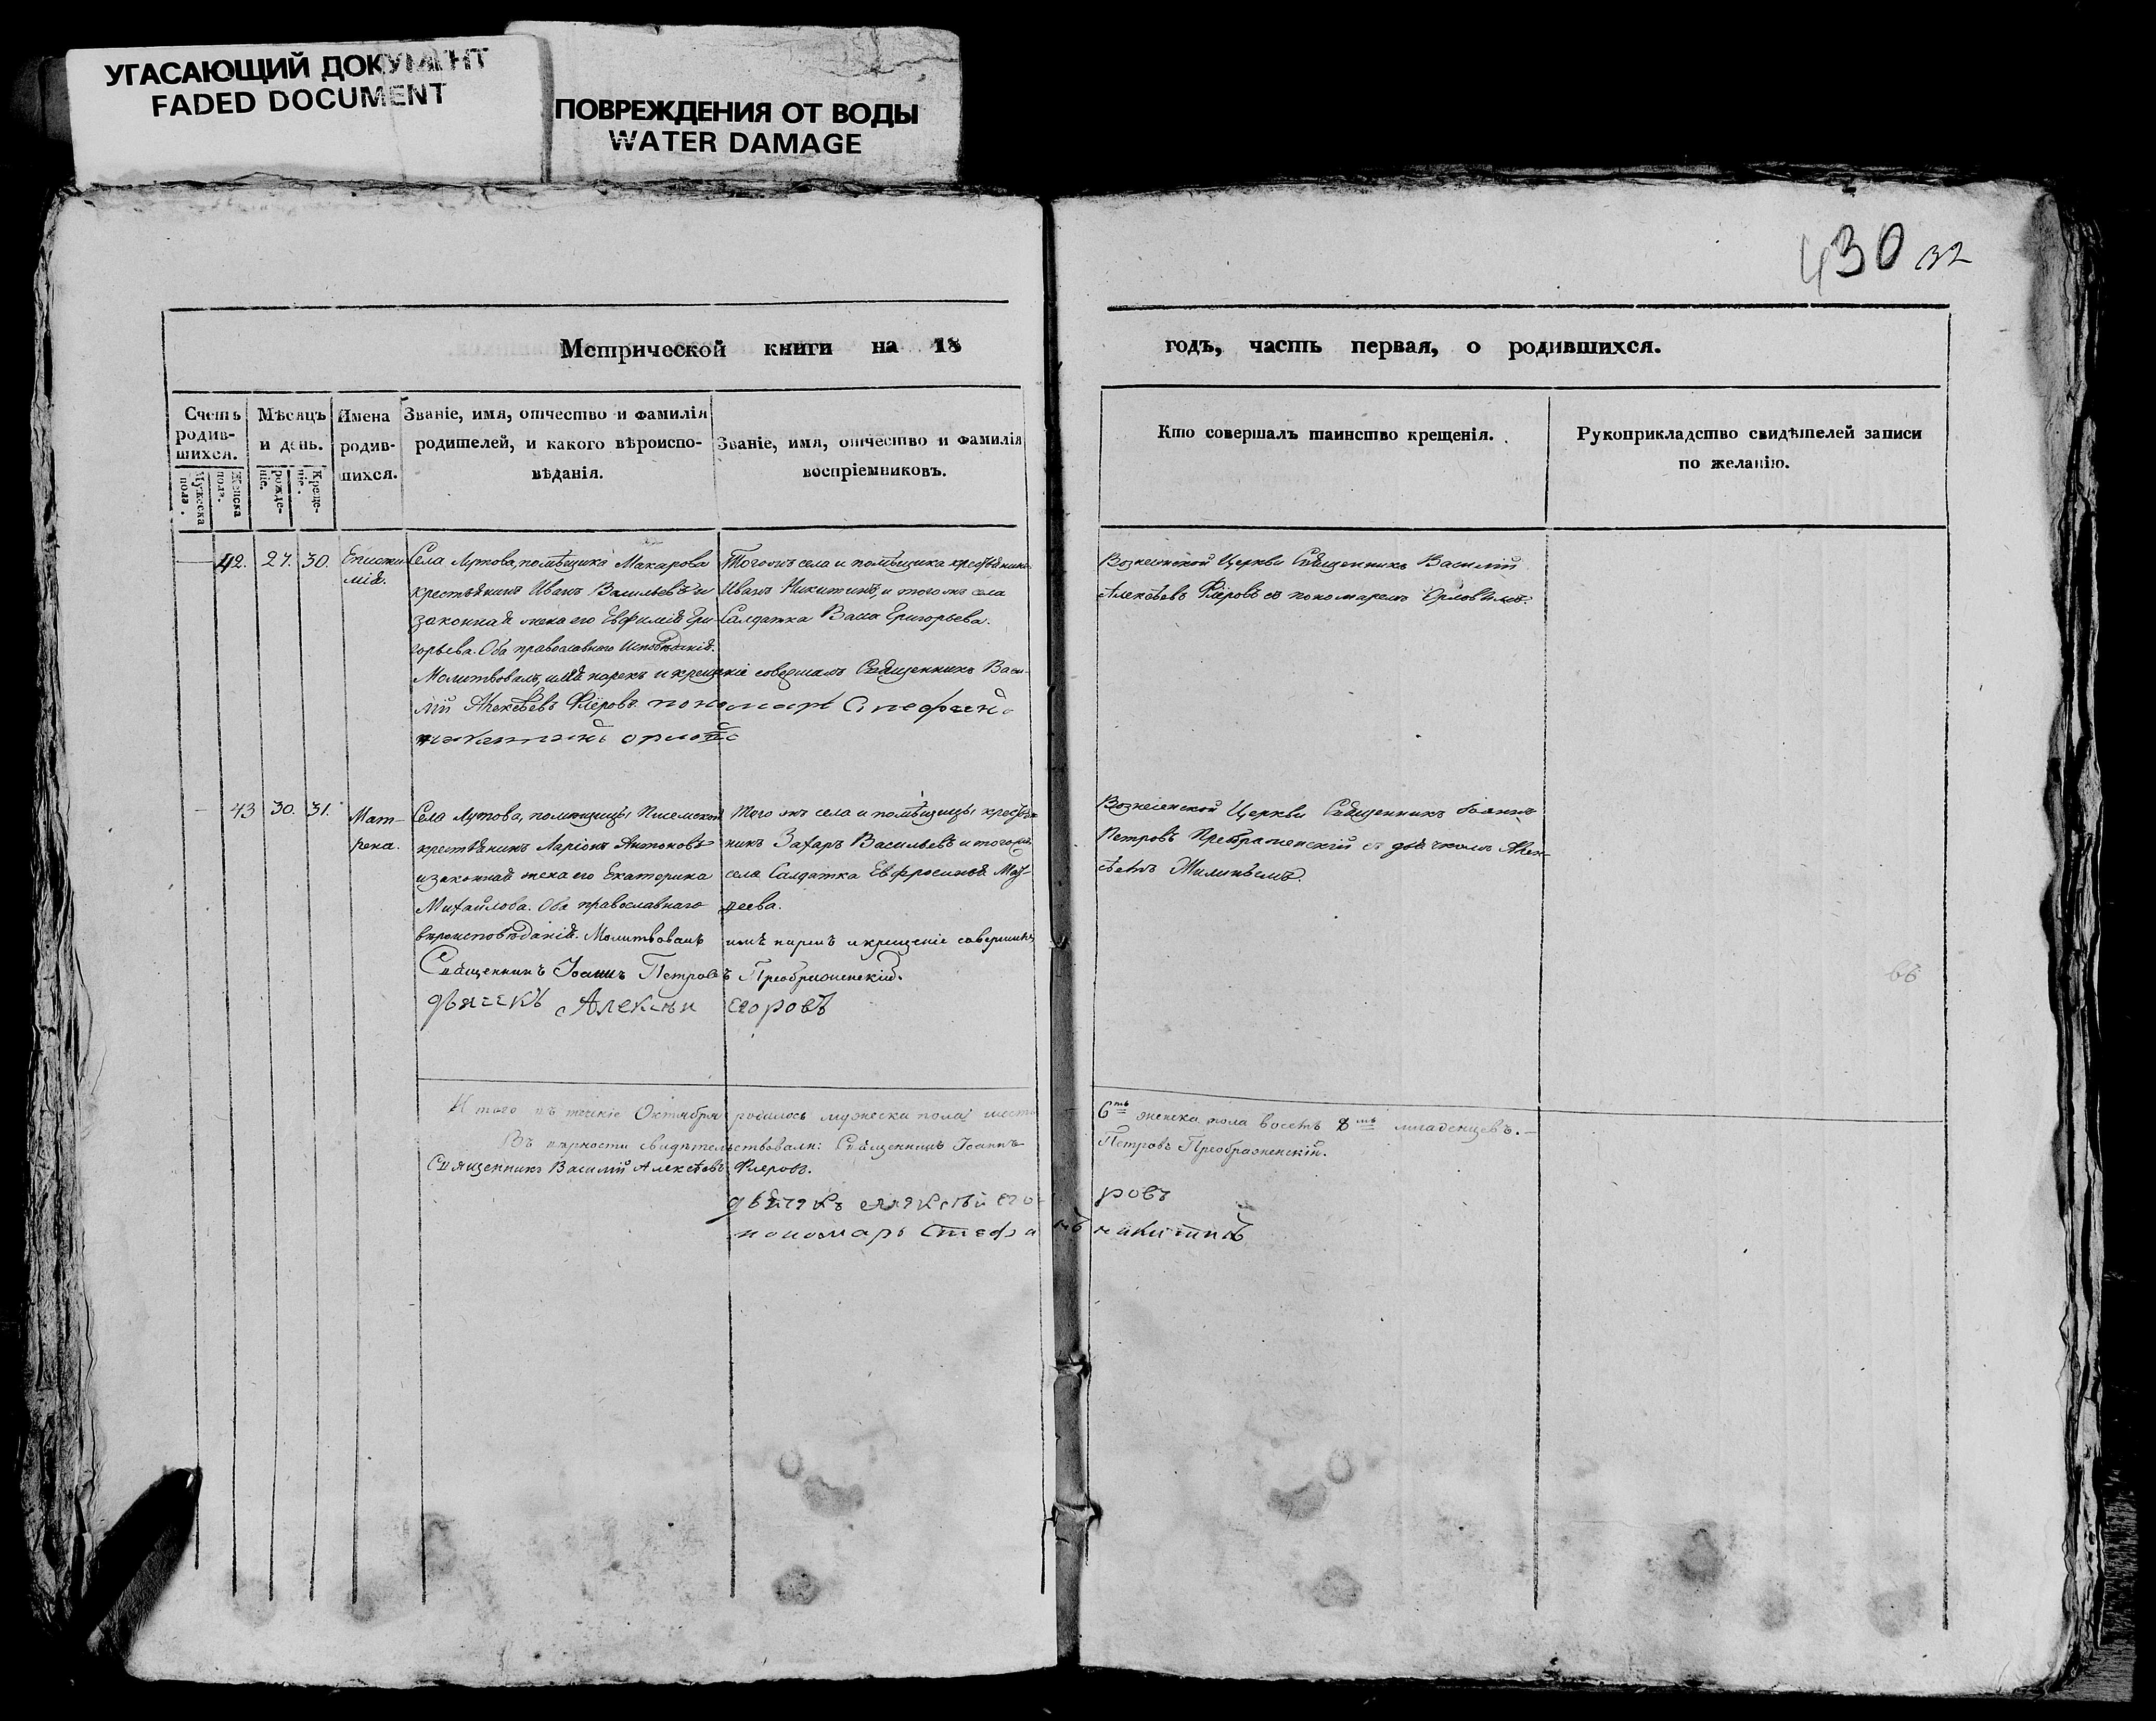 УГАСАЮЩИЙ ДОКУМЕНТ
FADED DOCUMENT
ПОВРЕЖДЕНИЯ ОТ ВОДЫ
WATER DAMAGE
430 32
Метрической книги на 18
годъ, часть первая, о родившихся.
Счетъ родив-шихся.
Мужеска пола.
Женска пола.
Мѣсяцъ и день.
Рожде-ніе.
Креще-ніе.
Имена родив-шихся.
Званіе, имя, отчество и фамилія
родителей, и какого вѣроиспо-
вѣданія.
Званіе, имя, отчество и фамилія
воспріемниковъ.
Кто совершалъ таинство крещенія.
Рукоприкладство свидѣтелей записи
по желанію.
42. 27. 30.
Села Лутова, помѣщика Макарова
крестьянинъ Иванъ Васильевъ и
законная жена его Евфимія Гри-
горьева. Оба православнаго исповѣданія.
Тогожъ села и помѣщика крестьянинъ
Иванъ Никитинъ, и тогожъ села
Салдатка Васса Григорьева.
Молитвовалъ, имя нарекъ и крещеніе совершалъ Священникъ Васи-
лій Алексѣевъ Флеровъ пономарь Стефанъ
Вознесенской Церкви Священникъ Василій
Алексѣевъ Флеровъ съ пономаремъ Орловымъ.
43 30. 31.
Мат-
рена.
Села Лутова, помѣщицы Писемской
крестьянинъ Ларіонъ Антоновъ
и законная жена его Екатерина
Михайлова. Оба православнаго
вѣроисповѣданія. Молитвовалъ имя нарекъ и крещеніе совершилъ
Священникъ Іоаннъ Петровъ Преображенскій.
дьячекъ Алексѣй Егоровъ
Того жъ села и помѣщицы крестья-
нинъ Захаръ Васильевъ и тогожъ
села Салдатка Евфросинья
Вознесенской Церкви Священникъ Іоаннъ
Петровъ Преображенскій съ дьячкомъ Алек-
сѣемъ
Итого въ теченіе Октября родилось мужеска пола шесть 6ть женска пола восемь 8мь младенцевъ.
Въ вѣрности свидѣтельствовали: Священникъ Іоаннъ Петровъ Преображенскій.
Священникъ Василій Алексѣевъ Флеровъ.
дьячекъ Алексѣй Егоровъ
пономарь Стефанъ Никитинъ